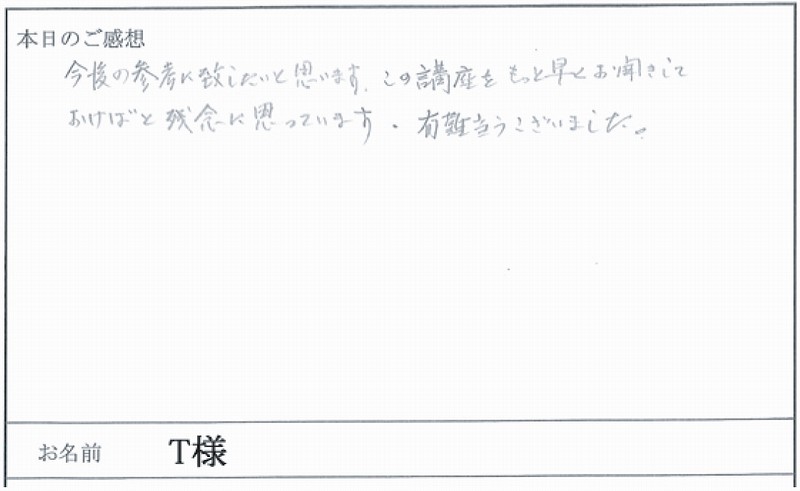 本日のご感想
今後の参考に致したいと思います。この講座をもっと早くお聞きして
おけばと残念に思っています。有難当うございました。
お名前 T様